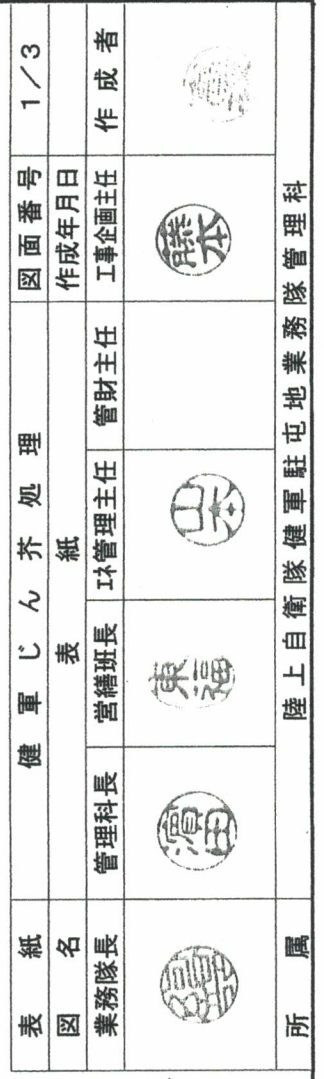 表紙 健軍じん芥処理 図面番号 1/3
図名 表紙 作成年月日
業務隊長 管理科長 営繕班長 エネ管理主任 管財主任 工事企画主任 作成者
濵田 東福 藤本
所属 陸上自衛隊健軍駐屯地業務隊管理科